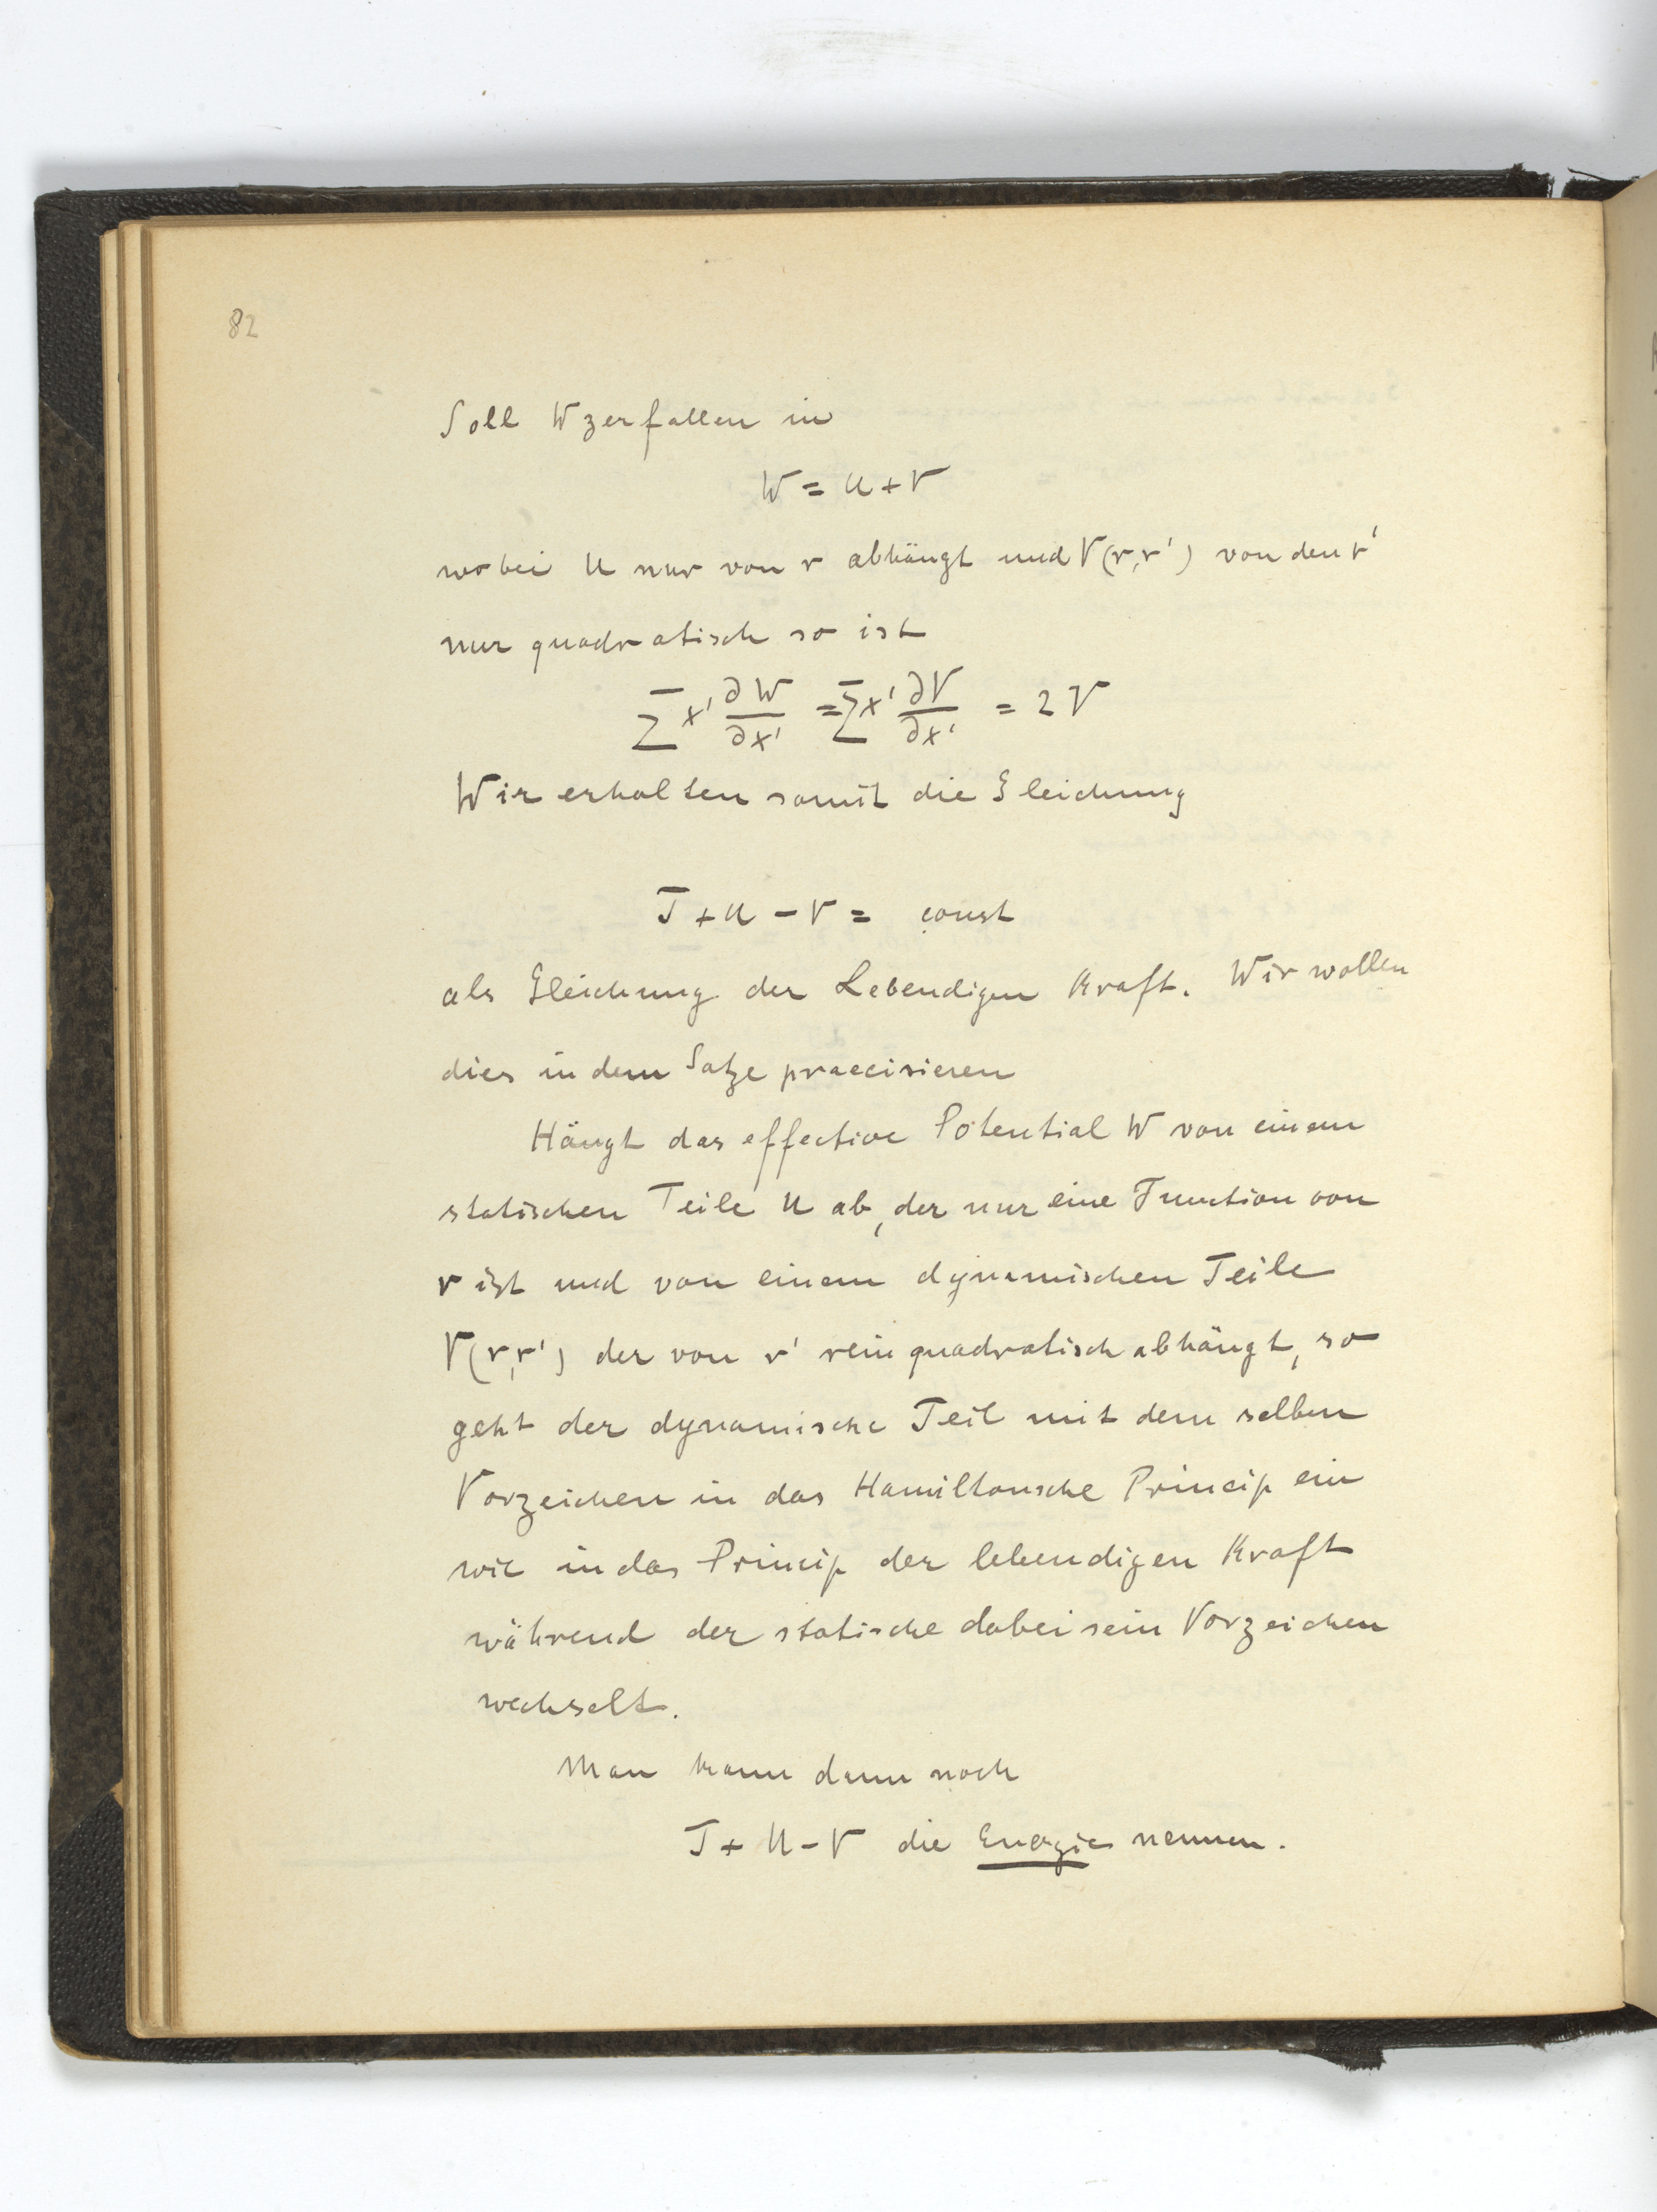 82
Soll W zerfallen in
W = U + V
wobei U nur von r abhängt und V(r,r') von den r'
nur quadratisch so ist
∑ x' ∂W/∂x' = ∑ x' ∂V/∂x' = 2V
Wir erhalten somit die Gleichung
T + U - V = const
als Gleichung der Lebendigen Kraft. Wir wollen
dies in dem Satze praecisieren
Hängt das effective Potential W von einem
statischen Teile U ab, der nur eine Function von
r ist und von einem dynamischen Teile
V(r,r') der von r' rein quadratisch abhängt, so
geht der dynamische Teil mit dem selben
Vorzeichen in das Hamiltonsche Princip ein
wie in das Princip der lebendigen Kraft
während der statische dabei sein Vorzeichen
wechselt.
Man kann dann noch
T + U - V die Energie nennen.